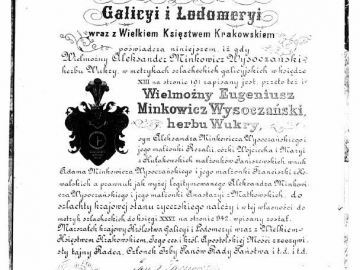 Galicyi i Lodomeryi
wraz z Wielkiem Księstwem Krakowskiem
poświadcza niniejszem, iż gdy
Wielmożny Aleksander Minkowicz Wysoczański
herbu Wukry, w metrykach szlacheckich galicyjskich w księdze
XIII na stronie 101 zapisany jest, przeto też i
Wielmożny Eugeniusz
Minkowicz Wysoczański,
herbu Wukry,
syn Aleksandra Minkowicza Wysoczańskiego i
jego małżonki Rozalii, córki Wojciecha i Maryi
z małżonków Janiszewskich, wnuk
Adama Minkowicza Wysoczańskiego i jego małżonki Franciszki z Ko-
walskich, a prawnuk jak wyżej legitymowanego Aleksandra Minkowi-
cza Wysoczańskiego i jego małżonki Anastazyi z Matkowskich, do
szlachty krajowej stanu rycerskiego należy i w tej własności do
metryk szlacheckich do księgi XXVI na stronie 942. wpisany został.
Marszałek krajowy Królestwa Galicyi i Lodomeryi wraz z Wielkiem
Księstwem Krakowskiem, Jego ces. i król. Apostolskiej Mości rzeczywi-
sty tajny Radca, Członek Izby Panów Rady Państwa i t. d. i t. d.